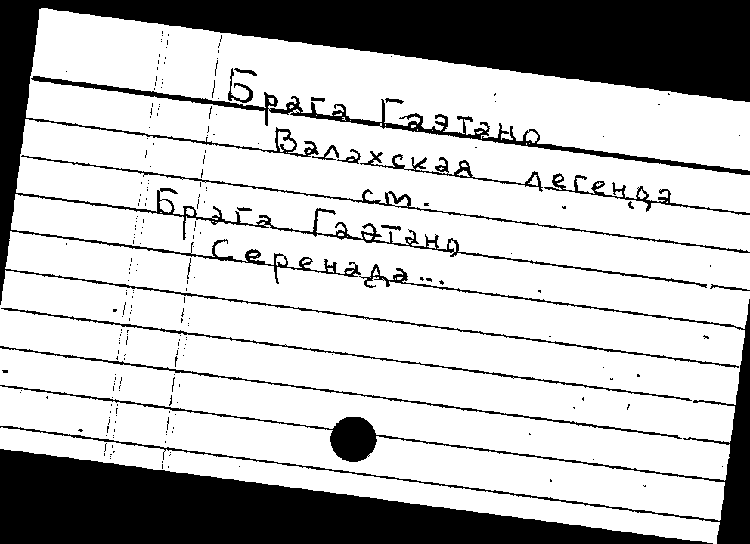 Брага Гаэтано
Валахская легенда
см.
Брага Гаэтано
Серенада...